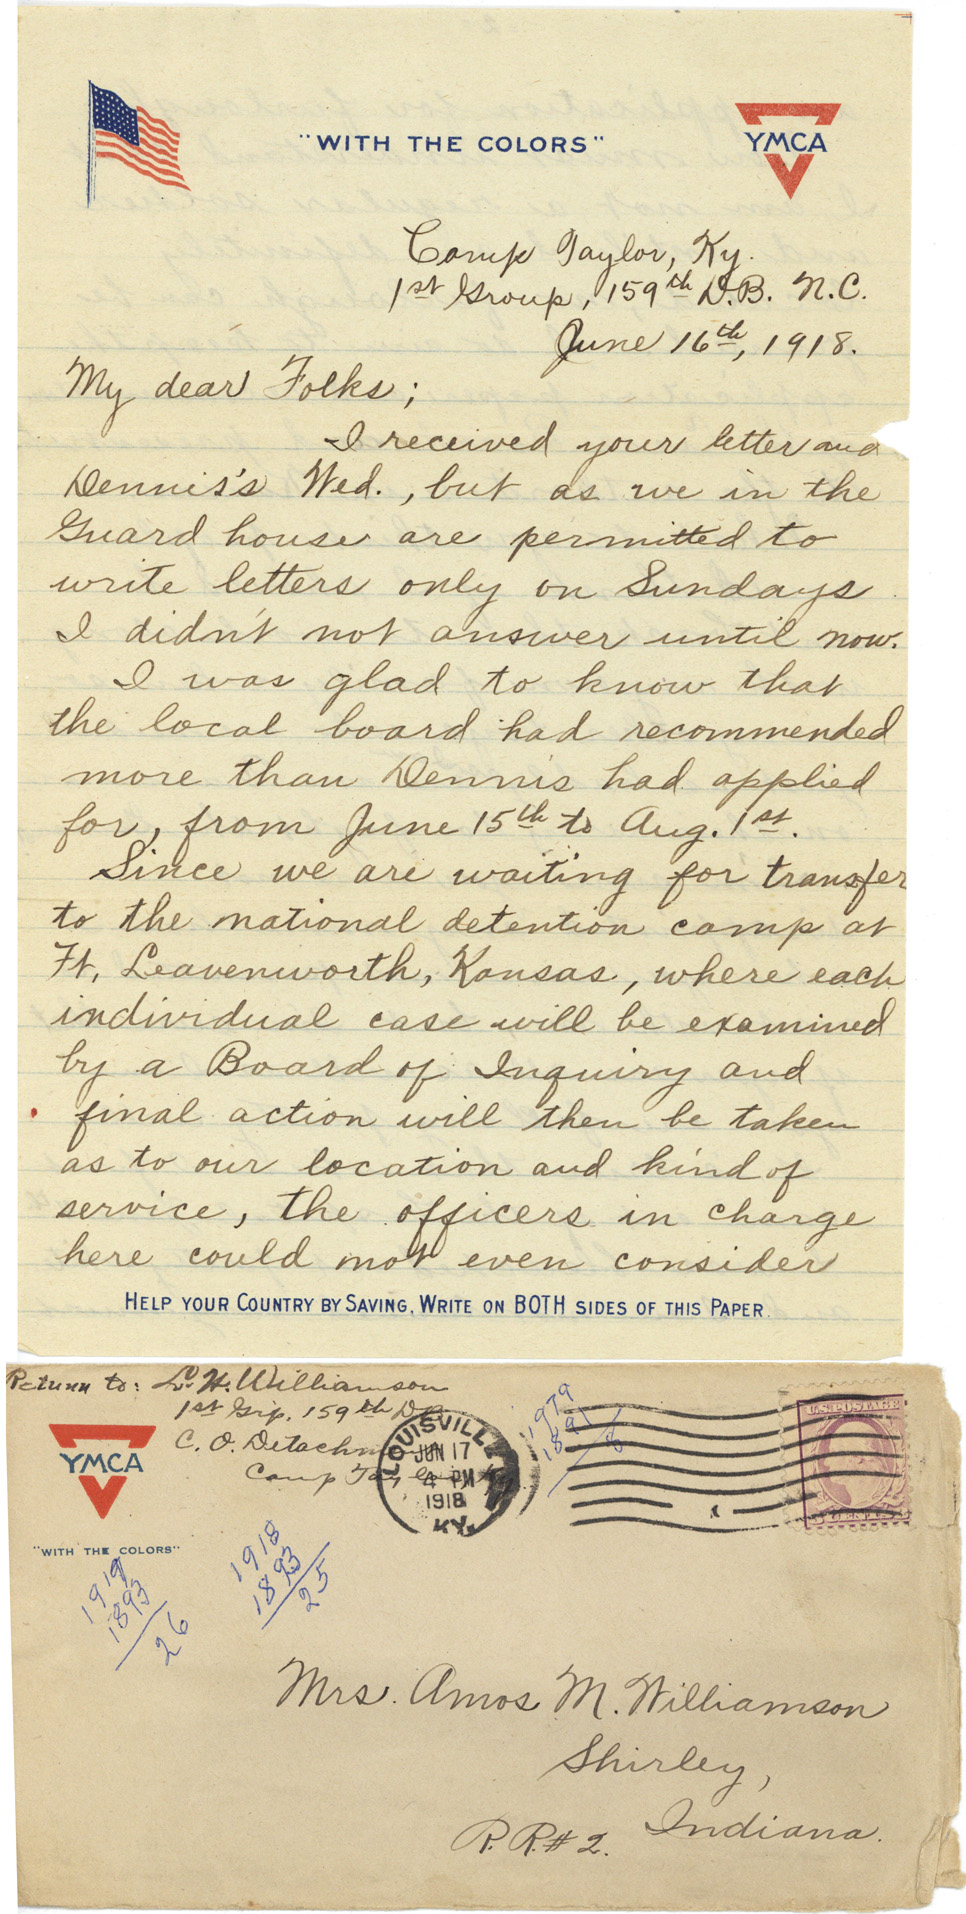 "WITH THE COLORS"
YMCA
Camp Taylor, Ky.
1st Group, 159th D.B. N.C.
June 16th, 1918.
My dear Folks;
I received your letter and
Dennis's Wed., but as we in the
Guard house are permitted to
write letters only on Sundays
I didn't not answer until now.
I was glad to know that
the local board had recommended
more than Dennis had applied
for, from June 15th to Aug. 1st.
Since we are waiting for transfer
to the national detention camp at
Ft. Leavenworth, Kansas, where each
individual case will be examined
by a Board of Inquiry and
final action will then be taken
as to our location and kind of
service, the officers in charge
here could not even consider
HELP YOUR COUNTRY BY SAVING. WRITE ON BOTH SIDES OF THIS PAPER.
Return to: L. H. Williamson
1st Grp. 159th D.B.
C. O. Detachm
Camp Taylor
YMCA
"WITH THE COLORS"
LOUISVILLE
JUN 17
4 PM
1918
KY.
1979
1891
U.S. POSTAGE
1918
1893
25
1919
1893
26
Mrs. Amos M. Williamson
Shirley,
Indiana.
R.R.# 2.